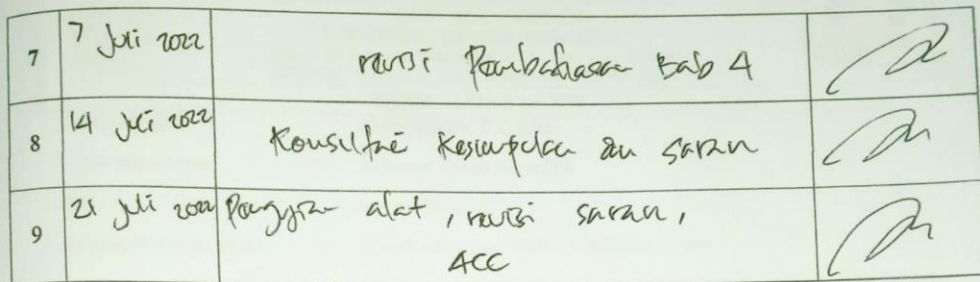 7 7 Juli 2022 revisi Pembahasan Bab 4
8 14 Juli 2022 Konsultasi Kesimpulan dan saran
9 21 Juli 2022 Pengujian alat, revisi saran,
ACC